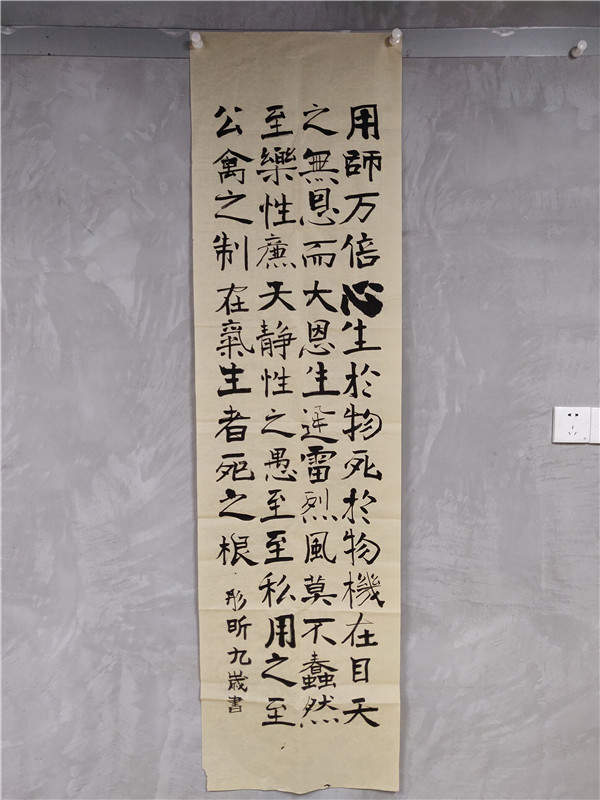 用師万倍心生於物死於物機在目天
之無恩而大恩生迅雷烈風莫不蠢然
至樂性廉天靜性之愚至至私用之至
公禽之制在氣生者死之根
彤昕九歲書